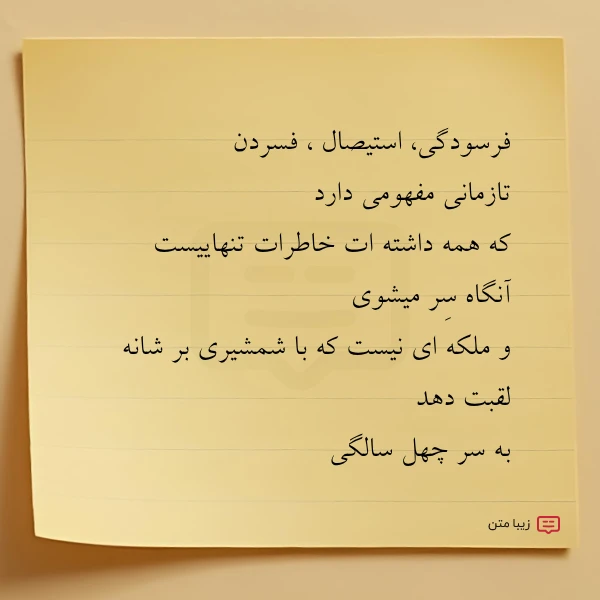 فرسودگی، استیصال ، فسردن
تازمانی مفهومی دارد
که همه داشته ات خاطرات تنهاییست
آنگاه سِر میشوی
و ملکه ای نیست که با شمشیری بر شانه
لقبت دهد
به سر چهل سالگی
زیبا متن